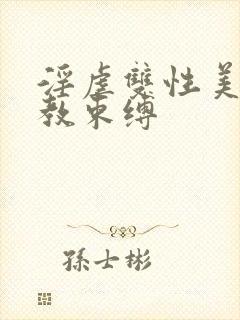 淫虐雙性美
教束縛
孫士彬